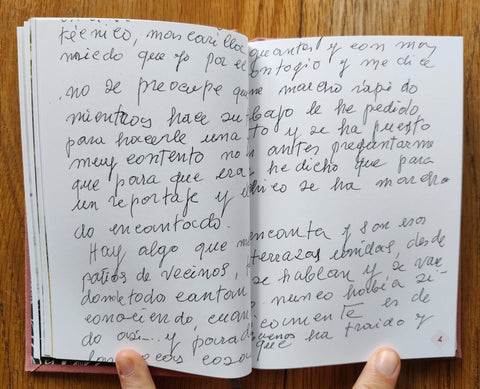 técnico, mascarilla guantes y con mas
miedo que yo por el contagio y me dice
. no se preocupe que me marcho rapido
mientras hace su bajo le he pedido
para hacerle una to y se ha puesto
muy contento no antes preguntarme
que para que era, he dicho que para
un reportaje y chico se ha marcha
do encantado.
Hay algo que me encanta y son esos
patios de vecinos, terrazas unidas, desde
donde todos cantan se hablan y se van
conociendo, nunca habia si-
do asi... y es de
cosas buenas que ha traido y
4